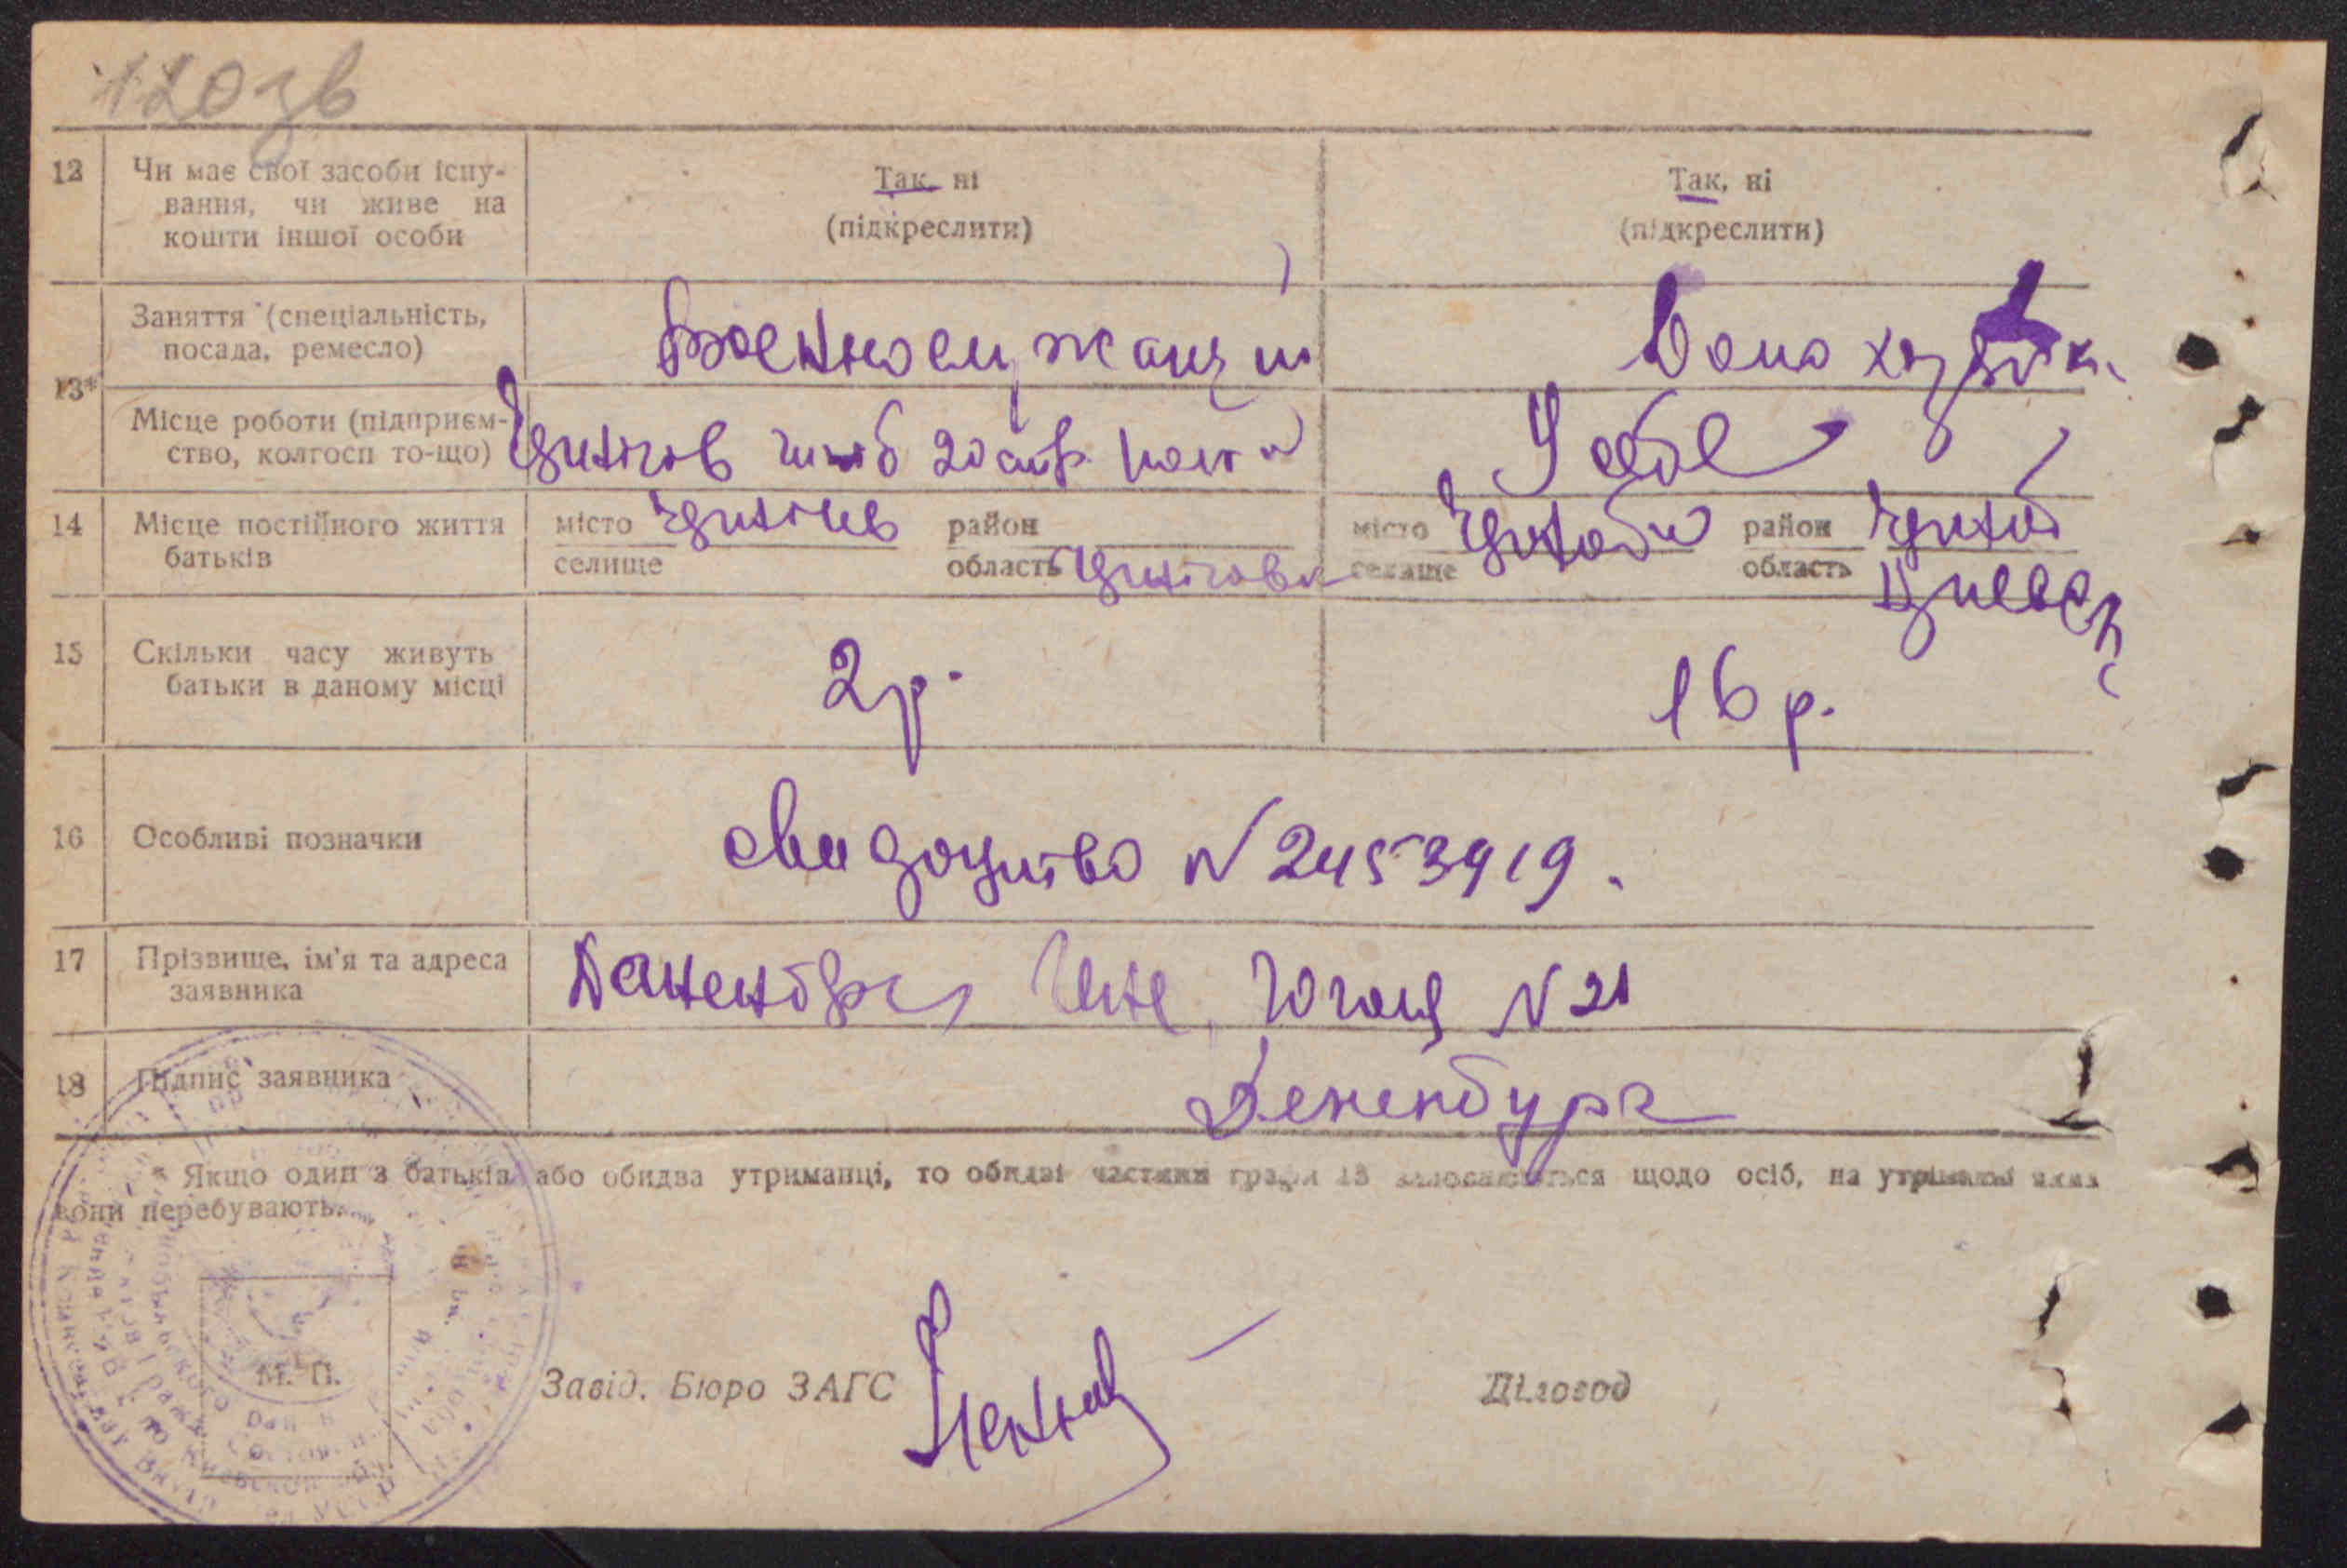 120 зв
12 Чи має свої засоби існу-
вання, чи живе на
кошти іншої особи
Так, ні
(підкреслити)
Так, ні
(підкреслити)
13*
Заняття (спеціальність,
посада, ремесло)
Военнослужащий
Домохазяйк.
Місце роботи (підприєм-
ство, колгосп то-що)
Чернігов штаб 20 стр. полка
У себе
14 Місце постійного життя
батьків
місто Чернігів район
селище область Черніговск
місто Чорнобил район Чорноб
селище область Киевск.
15 Скільки часу живуть
батьки в даному місці
2 р.
16 р.
16 Особливі позначки
свидоцтво N 2453919.
17 Прізвище, ім'я та адреса
заявника
N 21
18 Підпис заявника
Дененбург
* Якщо один з батьків або обидва утриманці, то обидві частини графи 13 заповнюються щодо осіб, на утриманні яких
вони перебувають.
М. П.
Завід. Бюро ЗАГС
Діловод